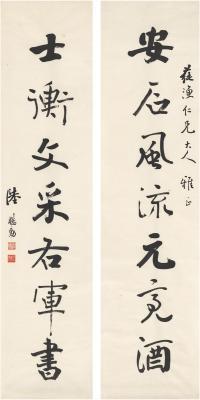 安石風流元亮酒
蓀漁仁兄大人雅正
士衡文采右軍書
陸懋勳